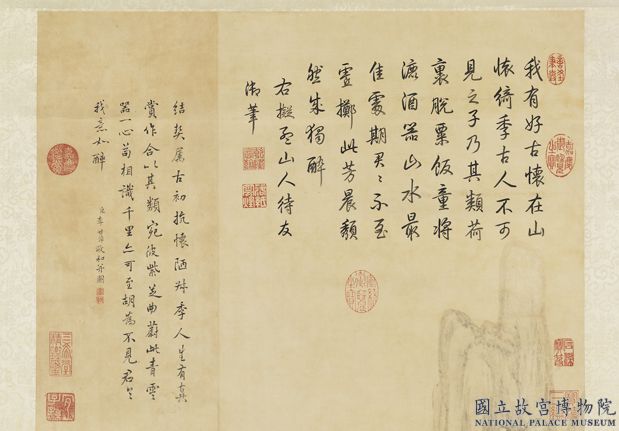 我有好古懷在山
懷綺季古人不可
見之子乃其類荷
裏脫粟飯童將
漉酒器山水最
佳處期君々不至
虛擲此芳晨頹
然成獨醉
右擬孟山人待友
御筆
結契屬古初抗懷陋叔季人生有真
賞作合以其類宛彼紫芝曲蔚此青雲
器一心苟相識千里亦可至胡為不見君々
我意如醉
臣李世倬敬和并圖
國立故宮博物院
NATIONAL PALACE MUSEUM